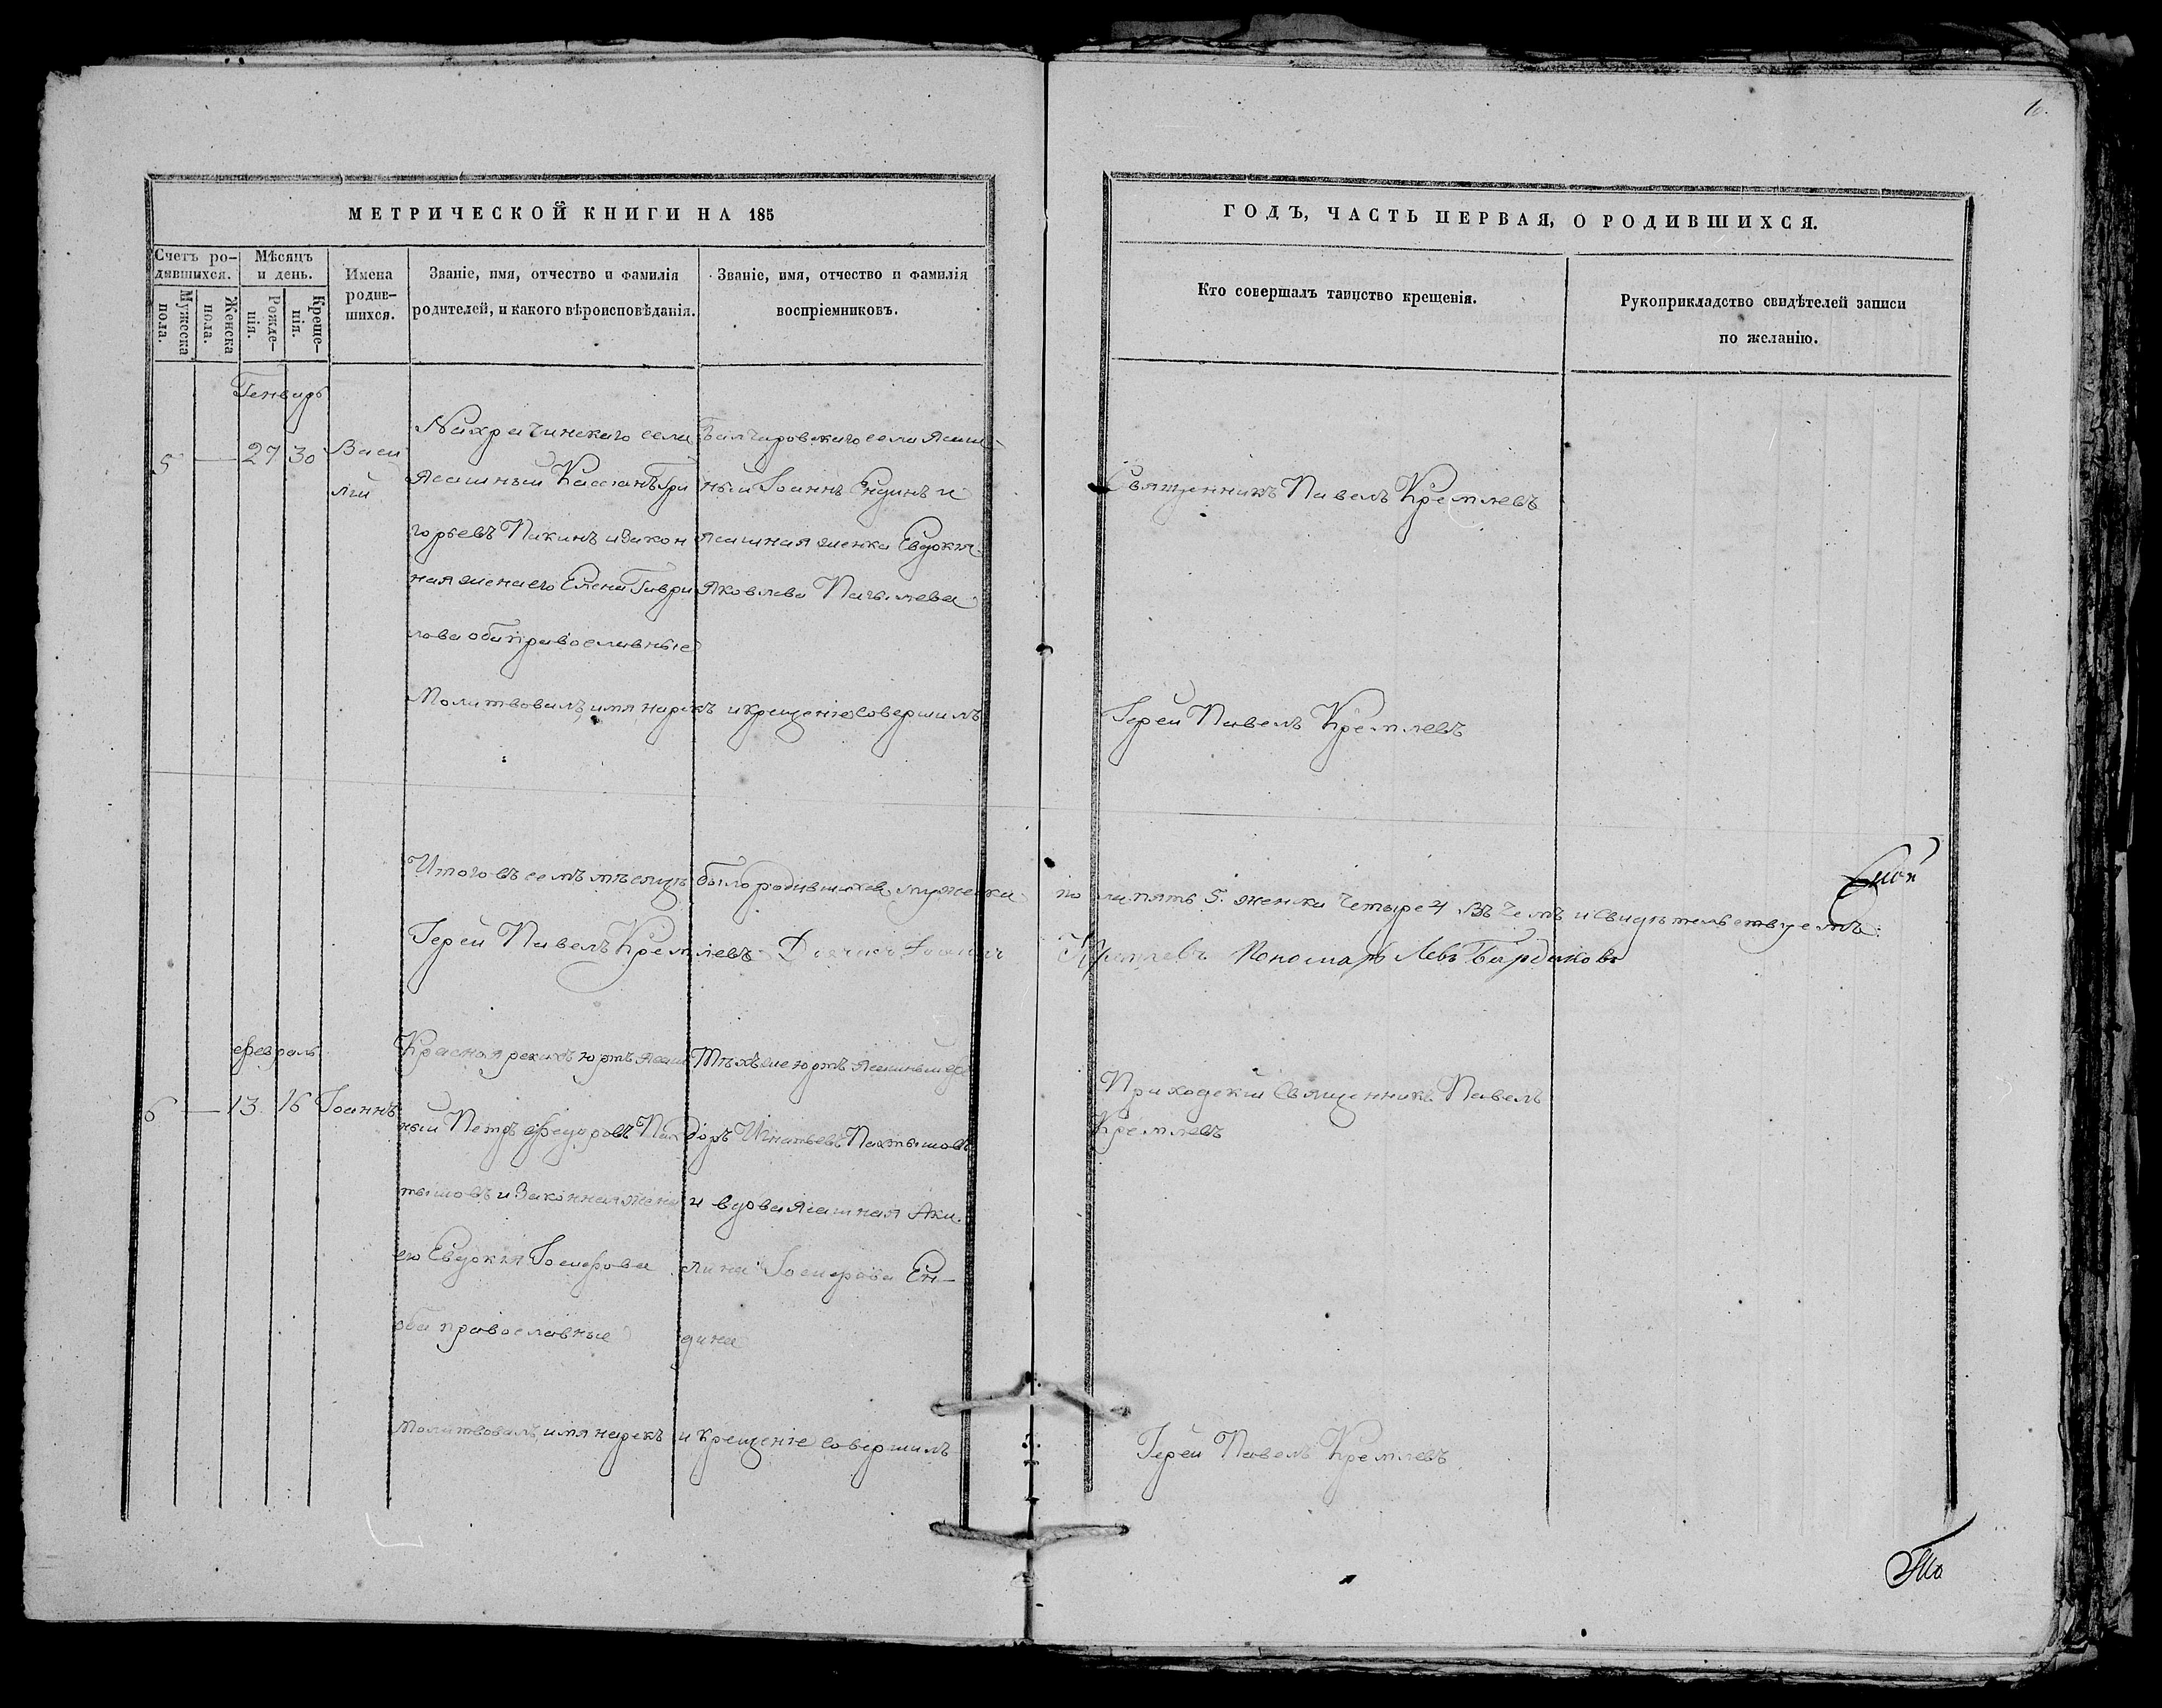 10.
МЕТРИЧЕСКОЙ КНИГИ НА 185
ГОДЪ, ЧАСТЬ ПЕРВАЯ, О РОДИВШИХСЯ.
Счетъ ро-
дившихся.
Мужеска
пола.
Женска
пола.
Мѣсяцъ
и день.
Рожде-
нія.
Креще-
нія.
Имена
родив-
шихся.
Званіе, имя, отчество и фамилія
родителей, и какого вѣроисповѣданія.
Званіе, имя, отчество и фамилія
воспріемниковъ.
Кто совершалъ таинство крещенія.
Рукоприкладство свидѣтелей записи
по желанію.
Генварь
5 — 27 30
Васи
лій
Нахрачинскаго села
Ясашный Кассіанъ Гри
горьевъ Пакинъ и закон
ная жена его Елена Гаври
лова оба православные
Болчаровскаго села Ясаш-
ный Іоаннъ Ендинъ и
Ясашная женка Евдокія
Яковлева
Священникъ Павелъ Кремлевъ
Молитвовалъ, имя нарекъ и крещеніе совершилъ
Іерей Павелъ Кремлевъ
Итого въ семъ мѣсяцѣ было родившихся мужеска пола пять 5. женска четыре 4 Въ чемъ и свидѣтельствуемъ:
Іерей Павелъ Кремлевъ Дьячекъ Іоаннъ Кремлевъ Пономарь Левъ
февраль
6 — 13 16 Іоаннъ
Красноярскихъ юртъ ясаш
ный Петръ Федоровъ Пах
тышовъ и Законная жена
его Евдокія Іосифова
оба православные
Тѣхъ же юртъ ясашный Фе
доръ Игнатьевъ Пахтышовъ
и вдова Ясашная Аку
лина Іосифова Ен-
дина
Приходскій Священникъ Павелъ
Кремлевъ
Молитвовалъ, имя нарекъ и крещеніе совершилъ
Іерей Павелъ Кремлевъ